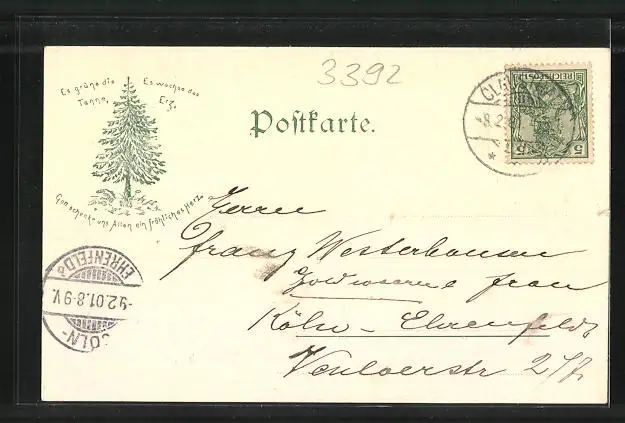 3392
Es grüne die Tanne,
Es wachse das Erz,
Gott schenke uns Allen ein fröhliches Herz.
Postkarte.
REICHSPOST
5
5
CLAUSTHAL
8.2.
Herrn
Franz Westerhausen
frau
Köln-Ehrenfeld
Venloerstr 217.
CÖLN-
EHRENFELD
-9.2.01.8-9V.